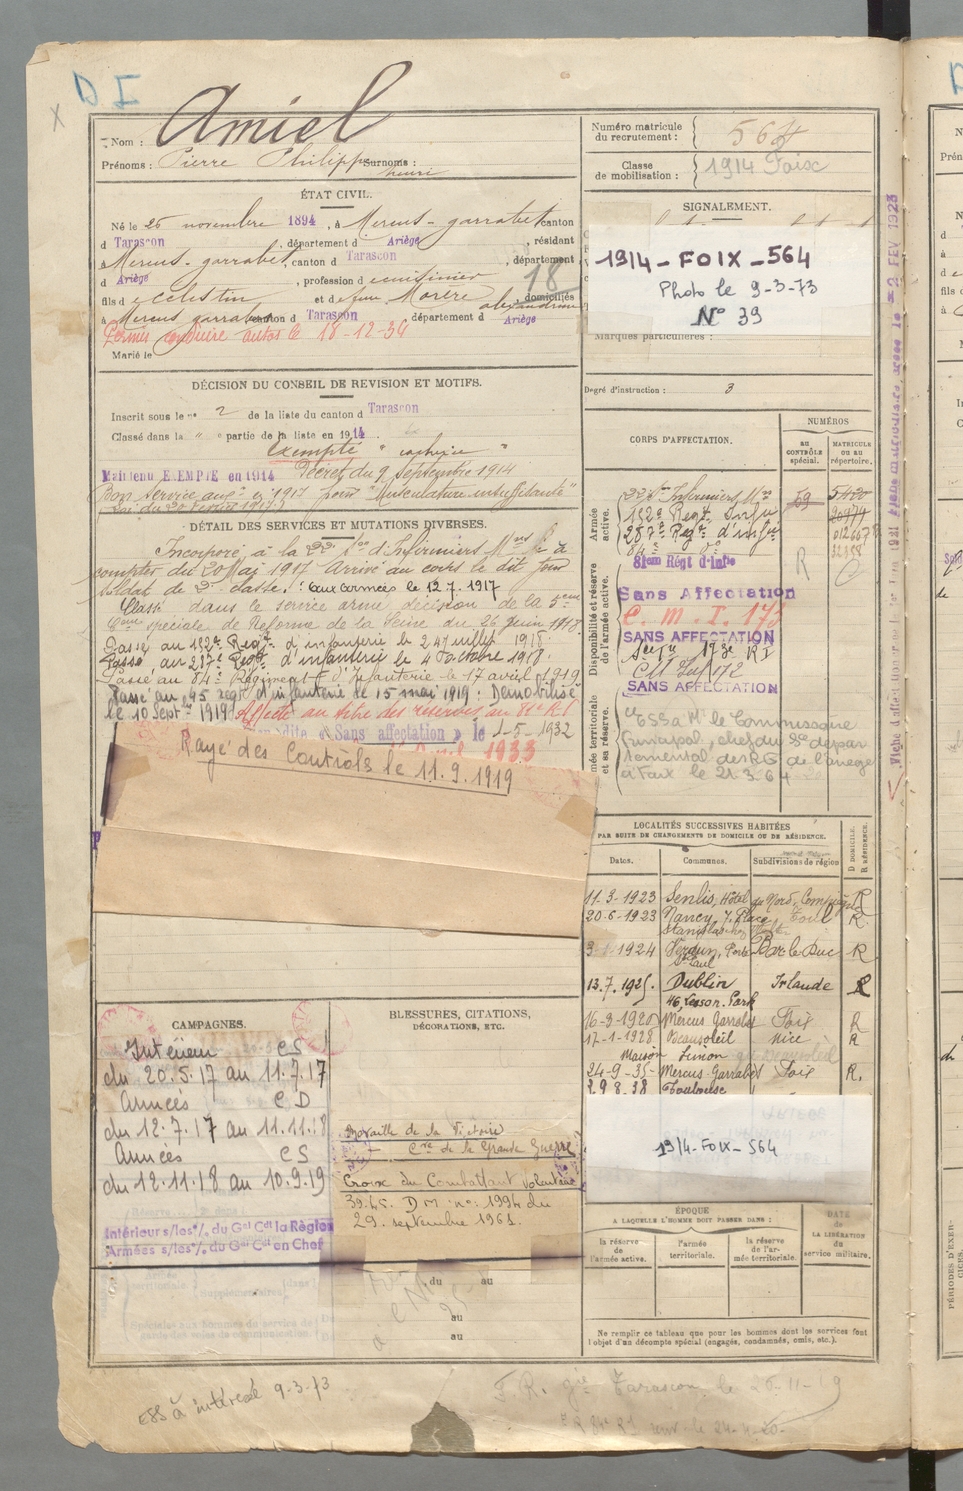 D I
Nom : Amiel
Prénoms : Pierre Philippe Surnoms :
henri
Numéro matricule
du recrutement : 564
Classe
de mobilisation : 1914 Foix
ÉTAT CIVIL.
Né le 25 novembre 1894, à Mercus-garrabet canton
d Tarascon, département d Ariège, résidant
à Mercus-garrabet, canton d Tarascon, département
d Ariège, profession d e cuisinier
18
fils d e Celestin et d e feue Morère alexandrine domiciliés
à Mercus garrabet canton d Tarascon, département d Ariège
Permis conduire autos le 18-12-34
Marié le
SIGNALEMENT.
1914-FOIX-564
Photo le 9-3-73
N° 39
Marques particulières :
Degré d'instruction : 3
DÉCISION DU CONSEIL DE REVISION ET MOTIFS.
Inscrit sous le n° 2 de la liste du canton d Tarascon
Classé dans la " e partie de la liste en 1914
Exempté
Maintenu EXEMPTE en 1914 Décret du 9 Septembre 1914
Bon service aux° en 1917 pour "Musculature insuffisante"
Loi du 20 février 1917.
DÉTAIL DES SERVICES ET MUTATIONS DIVERSES.
Incorporé à la 22e S°n d'Infirmiers Mres à
compter du 20 Mai 1917 Arrivé au corps le dit jour
Soldat de 2e classe. : aux armées le 12 7. 1917
Classé dans le service armé décision de la 5eme
Cion spéciale de Réforme de la Seine du 26 Juin 1918
Passé au 132e Regt d'infanterie le 24 Juillet 1918.
Passé au 287e Regt d'infanterie le 4 Octobre 1918.
Passé au 84e Régiment d'Infanterie le 17 avril 1919
Passé au 45 regt d'infanterie le 15 mai 1919. Démobilisé
le 10 Septre 1919 Affecté au titre des réserves au 81e RI
"Sans affectation" le 1-5-1932
1933
Rayé des Controls le 11.9.1919
CORPS D'AFFECTATION.
NUMÉROS
AU
CONTRÔLE
spécial.
MATRICULE
OU AU
répertoire.
Armée
active.
22e Son Infirmiers Mres 59 5420
132e Regt Infie
287e Regt d'infie
84e do
Disponibilité et réserve
de l'armée active.
81eme Régt d'Infie R
Sans Affectation
C. M. I. 173
SANS AFFECTATION
173e R I
CM Inf 172
SANS AFFECTATION
Armée territoriale
et sa réserve.
ESS à Mr le Commissaire
Principal, chef du Sce dépar
temental des RG de l'ariège
à Foix le 21.3.64
LOCALITÉS SUCCESSIVES HABITÉES
PAR SUITE DE CHANGEMENTS DE DOMICILE OU DE RÉSIDENCE.
Dates. Communes. Subdivisions de région D DOMICILE. R RÉSIDENCE.
11-3-1923 Senlis, Hôtel du Nord, Compiègne R
20-6-1923 Nancy, 7, Place Toul R
Stanislas
1924 Verdun, Porte Bar-le-Duc R
St Paul
13.7.1925. Dublin Irlande R
46, Leeson Park
16-9-1926 Mercus Garrabet Foix R
17-1-1928 Beausoleil Nice R
Maison Simon
24-9-35- Mercus-Garrabet Foix R.
29 8-38 Toulouse
1914-FOIX-564
CAMPAGNES.
Intérieur CS
du 20.5.17 au 11.7.17
Armées C D
du 12.7.17 au 11.11.18
Armées CS
du 12.11.18 au 10.9.19
Intérieur s/les o/. du Gal Cdt la Région
Armées s/les o/. du Gal Cdt en Chef
BLESSURES, CITATIONS,
DÉCORATIONS, ETC.
Médaille de la Victoire
Cve de la Grande Guerre
Croix du Combattant Volontaire
39.45. D M. n°: 1994 du
29. septembre 1961.
du au
au
au
ÉPOQUE
A LAQUELLE L'HOMME DOIT PASSER DANS :
la réserve
de
l'armée active.
l'armée
territoriale.
la réserve
de l'ar-
mée territoriale.
DATE
de
LA LIBÉRATION
du
service militaire.
Ne remplir ce tableau que pour les hommes dont les services font
l'objet d'un décompte spécial (engagés, condamnés, omis, etc.).
ESS à intéressé 9-3-73
F.R. gie Tarascon, le 26-11-19
PÉRIODES D'EXER-
CICES.